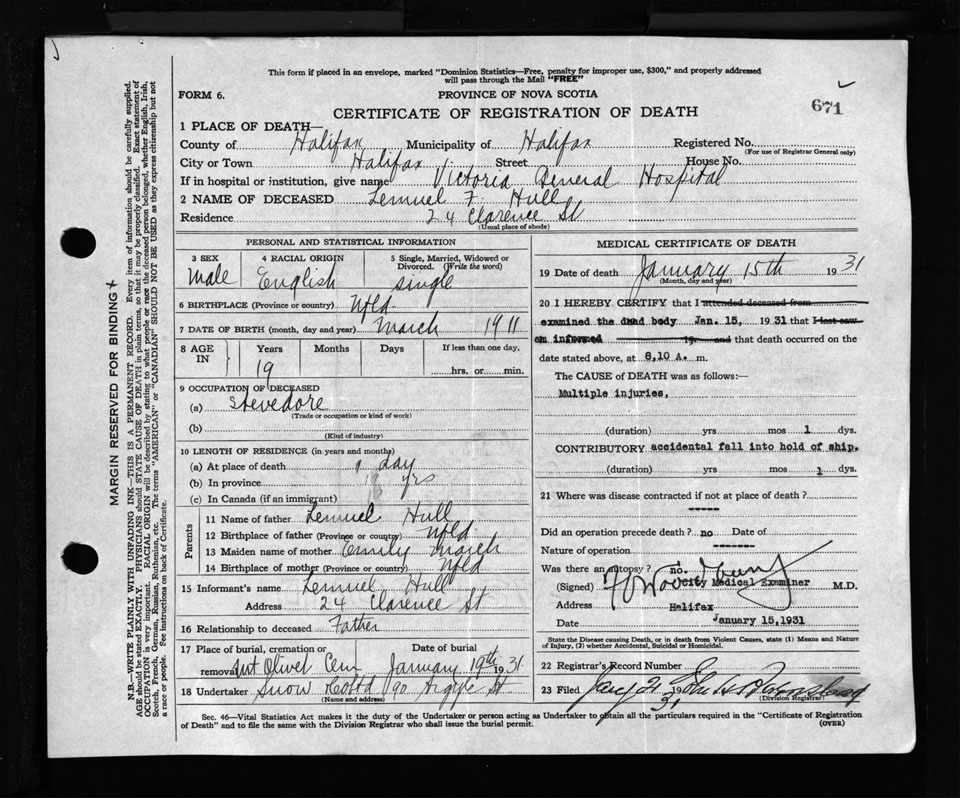 This form if placed in an envelope, marked "Dominion Statistics—Free, penalty for improper use, $300," and properly addressed
will pass through the Mail "FREE"
FORM 6. PROVINCE OF NOVA SCOTIA
671
CERTIFICATE OF REGISTRATION OF DEATH
1 PLACE OF DEATH—
County of Halifax Municipality of Halifax Registered No.
(For use of Registrar General only)
City or Town Halifax Street House No.
If in hospital or institution, give name Victoria General Hospital
2 NAME OF DECEASED Lemuel F. Hull
Residence 24 Clarence St
(Usual place of abode)
PERSONAL AND STATISTICAL INFORMATION
3 SEX 4 RACIAL ORIGIN 5 Single, Married, Widowed or
Divorced. (Write the word)
Male English single
6 BIRTHPLACE (Province or country) Nfld.
7 DATE OF BIRTH (month, day and year) March 1911
8 AGE IN Years Months Days If less than one day.
19 hrs. or min.
9 OCCUPATION OF DECEASED
(a) Stevedore
(Trade or occupation or kind of work)
(b)
(Kind of industry)
10 LENGTH OF RESIDENCE (in years and months)
(a) At place of death 1 day
(b) In province 18 yrs
(c) In Canada (if an immigrant)
Parents
11 Name of father Lemuel Hull
12 Birthplace of father (Province or country) Nfld.
13 Maiden name of mother Emily March
14 Birthplace of mother (Province or country) Nfld
15 Informant's name Lemuel Hull
Address 24 Clarence St
16 Relationship to deceased Father
17 Place of burial, cremation or Date of burial
removal Mt Olivet Cem January 19th 1931
18 Undertaker Snow & Co Ltd 90 Argyle St
(Name and address)
MEDICAL CERTIFICATE OF DEATH
19 Date of death January 15th 1931
(Month, day and year)
20 I HEREBY CERTIFY that I attended deceased from
examined the dead body Jan. 15, 1931 that I last saw
am informed 19 and that death occurred on the
date stated above, at 8,10 A. m.
The CAUSE of DEATH was as follows:—
Multiple injuries,
(duration) yrs mos 1 dys.
CONTRIBUTORY accidental fall into hold of ship.
(duration) yrs mos 1 dys.
21 Where was disease contracted if not at place of death?
-----
Did an operation precede death? no Date of
Nature of operation -------
Was there an autopsy? no.
(Signed) City Medical Examiner M.D.
Address Halifax
Date January 15,1931
State the Disease causing Death, or in death from Violent Causes, state (1) Means and Nature
of Injury, (2) whether Accidental, Suicidal or Homicidal.
22 Registrar's Record Number
23 Filed Jany 21 1931
(Division Registrar)
Sec. 46—Vital Statistics Act makes it the duty of the Undertaker or person acting as Undertaker to obtain all the particulars required in the "Certificate of Registration
of Death" and to file the same with the Division Registrar who shall issue the burial permit. (OVER)
MARGIN RESERVED FOR BINDING
N.B.—WRITE PLAINLY WITH UNFADING INK—THIS IS A PERMANENT RECORD. Every item of information should be carefully supplied.
AGE should be stated EXACTLY. PHYSICIANS should STATE CAUSE OF DEATH in plain terms, so that it may be properly classified. Exact statement of
OCCUPATION is very important. RACIAL ORIGIN will be described by stating to what people or race the deceased person belonged, whether English, Irish,
Scotch, French, German, Russian, Ruthenian, etc. The terms "AMERICAN" or "CANADIAN" SHOULD NOT BE USED as they express citizenship but not
a race or people. See instructions on back of Certificate.